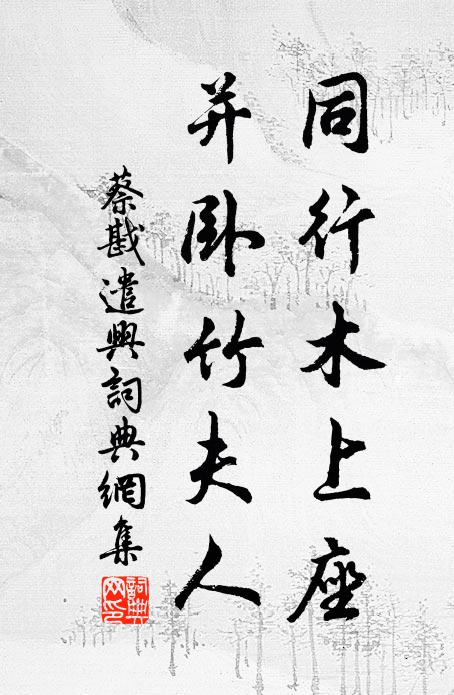 同行木上座
并卧竹夫人
蔡戡遣興詞典網集
詞典网印